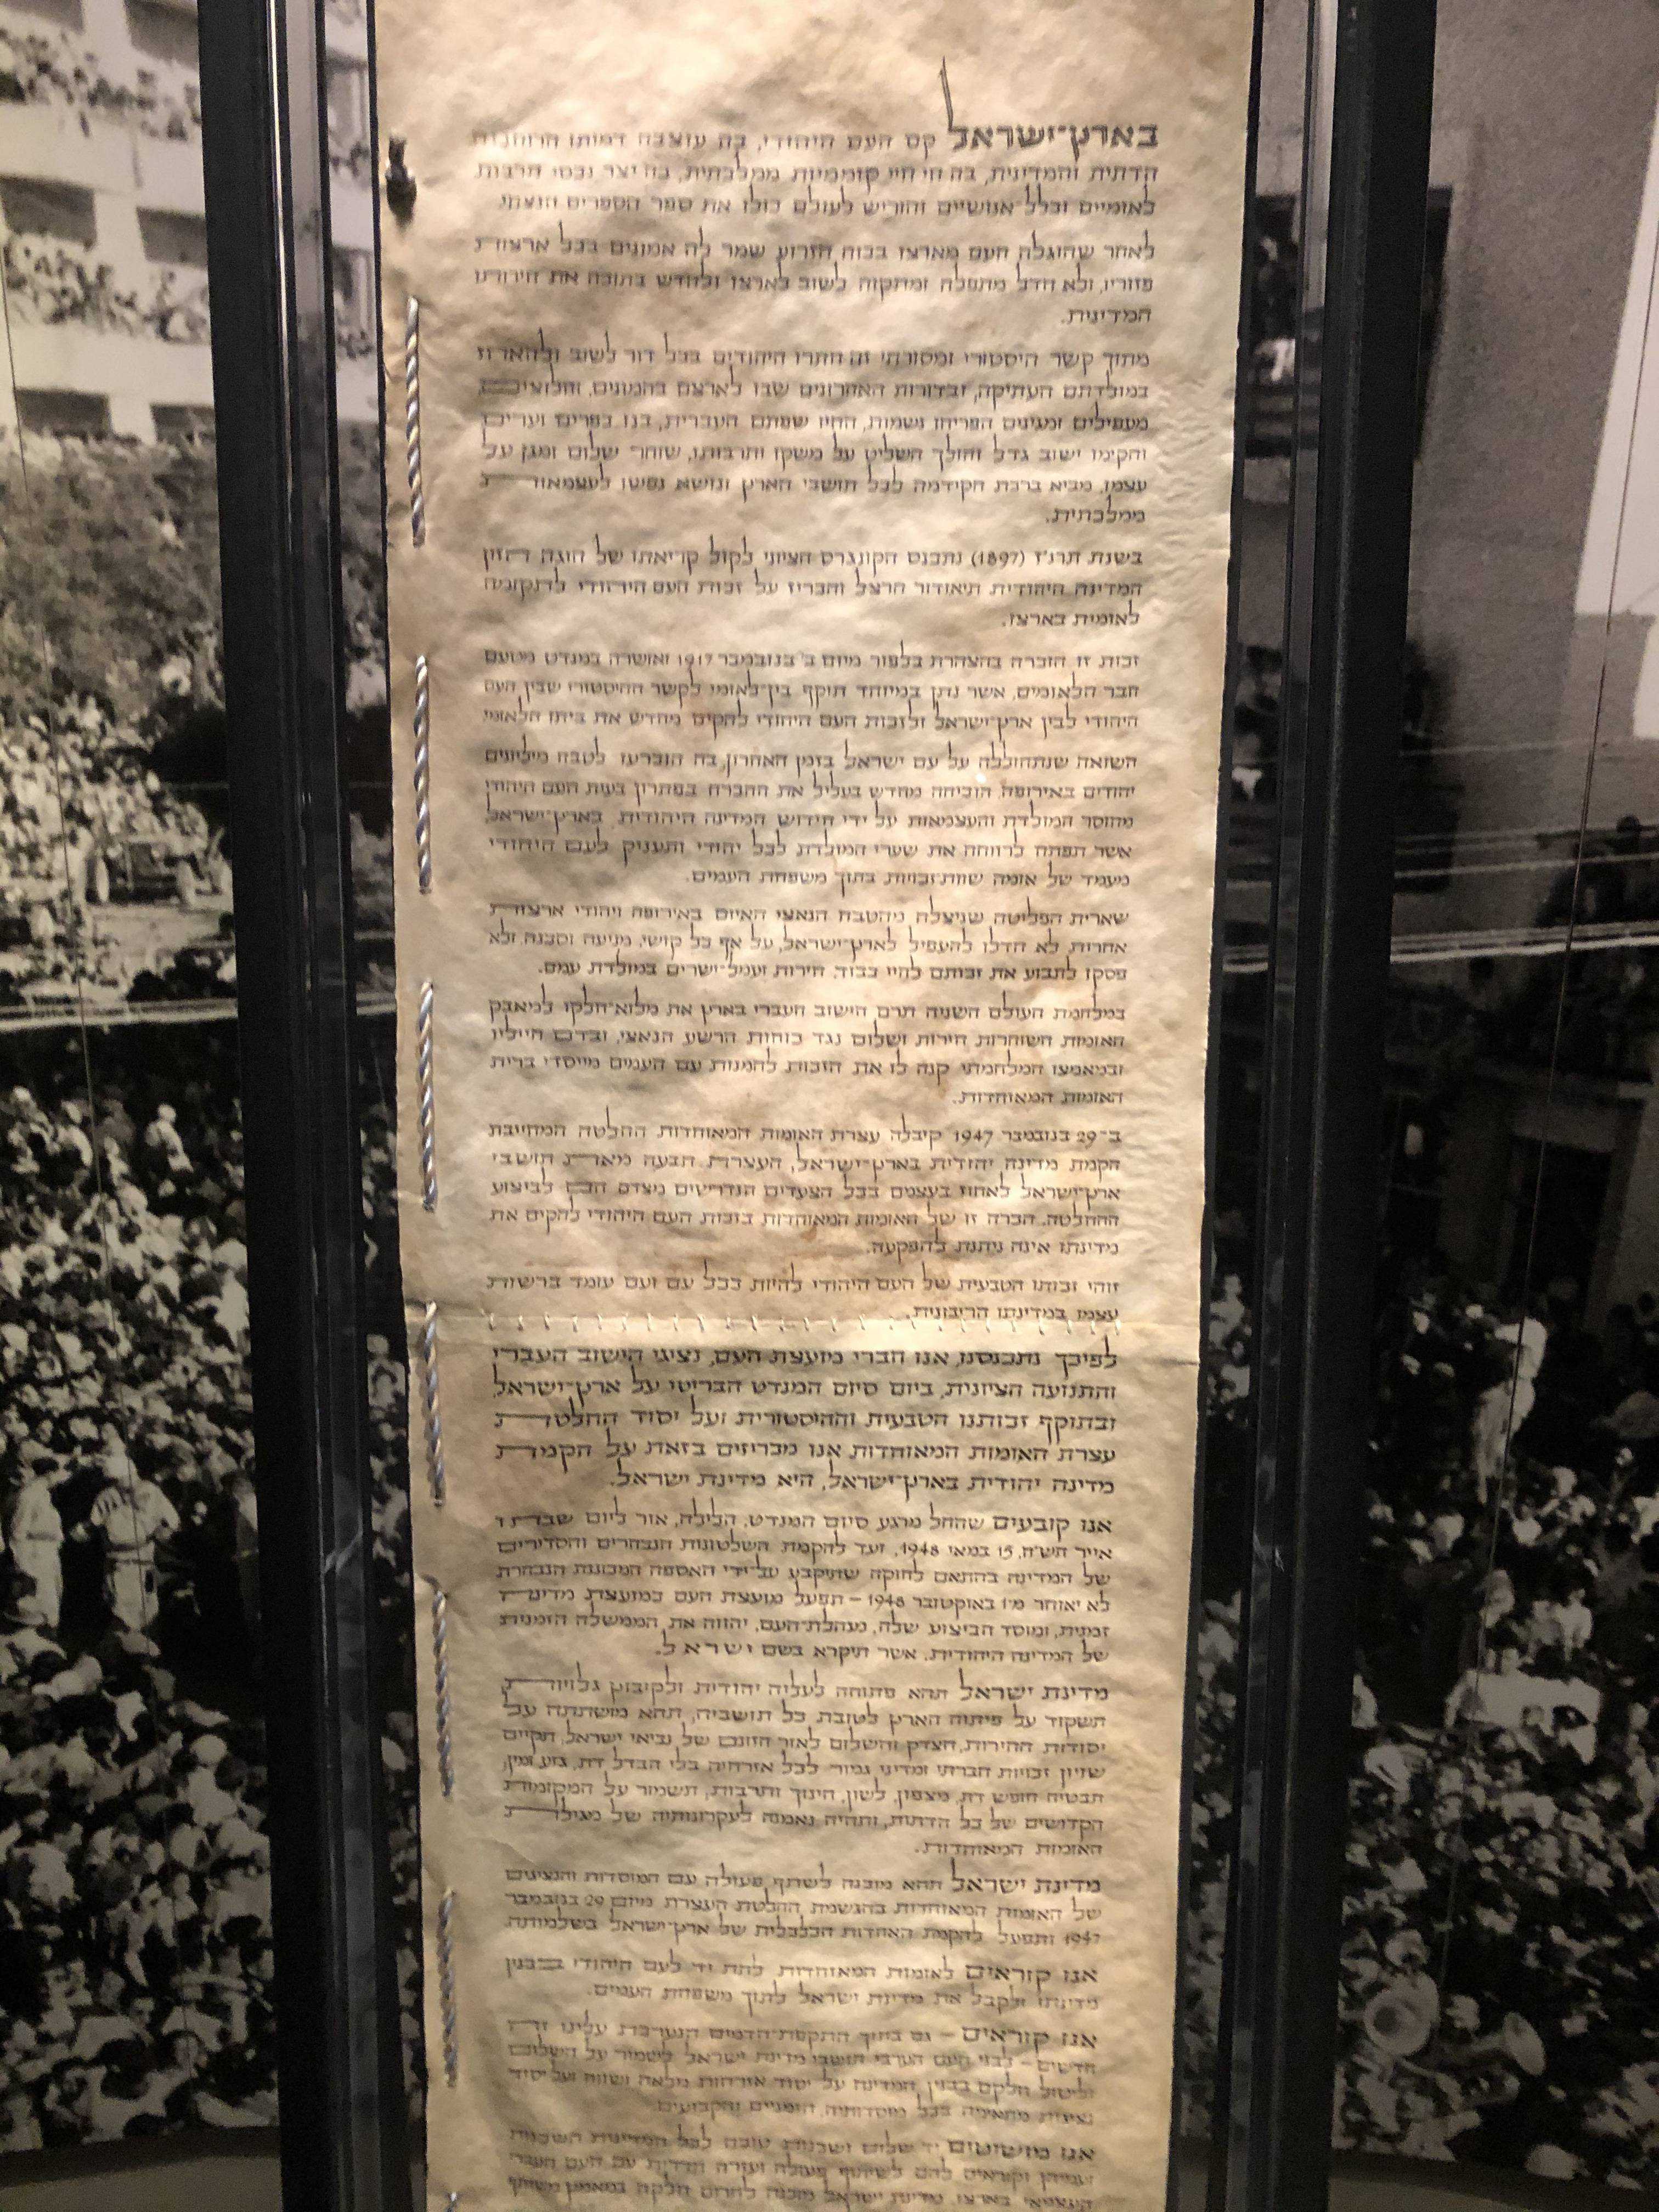 בארץ־ישראל קם העם היהודי, בה עוצבה דמותו הרוחנית
הדתית והמדינית, בה חי חיי קוממיות ממלכתית, בה יצר נכסי תרבות
לאומיים וכלל־אנושיים והוריש לעולם כולו את ספר הספרים הנצחי.
לאחר שהוגלה העם מארצו בכוח הזרוע שמר לה אמונים בכל ארצות
פזוריו, ולא חדל מתפלה ומתקוה לשוב לארצו ולחדש בתוכה את חירותו
המדינית.
מתוך קשר היסטורי ומסורתי זה חתרו היהודים בכל דור לשוב ולהאחז
במולדתם העתיקה, ובדורות האחרונים שבו לארצם בהמונים, וחלוצים,
מעפילים ומגינים הפריחו נשמות, החיו שפתם העברית, בנו כפרים וערים
והקימו ישוב גדל והולך השליט על משקו ותרבותו, שוחר שלום ומגן על
עצמו, מביא ברכת הקידמה לכל תושבי הארץ ונושא נפשו לעצמאות
ממלכתית.
בשנת תרנ״ז (1897) נתכנס הקונגרס הציוני לקול קריאתו של הוגה חזון
המדינה היהודית תיאודור הרצל והכריז על זכות העם היהודי לתקומה
לאומית בארצו.
זכות זו הוכרה בהצהרת בלפור מיום ב׳ בנובמבר 1917 ואושרה במנדט מטעם
חבר הלאומים, אשר נתן במיוחד תוקף בין־לאומי לקשר ההיסטורי שבין העם
היהודי לבין ארץ־ישראל ולזכות העם היהודי להקים מחדש את ביתו הלאומי.
השואה שנתחוללה על עם ישראל בזמן האחרון, בה הוכרעו לטבח מיליונים
יהודים באירופה, הוכיחה מחדש בעליל את ההכרח בפתרון בעית העם היהודי
מחוסר המולדת והעצמאות על־ידי חידוש המדינה היהודית בארץ־ישראל,
אשר תפתח לרווחה את שערי המולדת לכל יהודי ותעניק לעם היהודי
מעמד של אומה שוות־זכויות בתוך משפחת העמים.
שארית הפליטה שניצלה מהטבח הנאצי האיום באירופה ויהודי ארצות
אחרות לא חדלו להעפיל לארץ־ישראל, על אף כל קושי, מניעה וסכנה ולא
פסקו לתבוע את זכותם לחיי כבוד, חירות ועמל־ישרים במולדת עמם.
במלחמת העולם השניה תרם הישוב העברי בארץ את מלוא־חלקו למאבק
האומות השוחרות חירות ושלום נגד כוחות הרשע הנאצי, ובדם חייליו
ובמאמצו המלחמתי קנה לו את הזכות להמנות עם העמים מייסדי ברית
האומות המאוחדות.
ב־29 בנובמבר 1947 קיבלה עצרת האומות המאוחדות החלטה המחייבת
הקמת מדינה יהודית בארץ־ישראל, העצרת תבעה מאת תושבי
ארץ־ישראל לאחוז בעצמם בכל הצעדים הנדרשים מצדם הם לביצוע
ההחלטה. הכרה זו של האומות המאוחדות בזכות העם היהודי להקים את
מדינתו אינה ניתנת להפקעה.
זוהי זכותו הטבעית של העם היהודי להיות ככל עם ועם עומד ברשות
עצמו במדינתו הריבונית.
לפיכך נתכנסנו, אנו חברי מועצת העם, נציגי הישוב העברי
והתנועה הציונית, ביום סיום המנדט הבריטי על ארץ־ישראל,
ובתוקף זכותנו הטבעית וההיסטורית ועל יסוד החלטת
עצרת האומות המאוחדות אנו מכריזים בזאת על הקמת
מדינה יהודית בארץ־ישראל, היא מדינת ישראל.
אנו קובעים שהחל מרגע סיום המנדט, הלילה, אור ליום שבת ו
אייר תש״ח, 15 במאי 1948, ועד להקמת השלטונות הנבחרים והסדירים
של המדינה בהתאם לחוקה שתיקבע על־ידי האספה המכוננת הנבחרת
לא יאוחר מ־1 באוקטובר 1948 – תפעל מועצת העם כמועצת מדינה
זמנית, ומוסד הביצוע שלה, מנהלת־העם, יהווה את הממשלה הזמנית
של המדינה היהודית, אשר תיקרא בשם ישראל.
מדינת ישראל תהא פתוחה לעליה יהודית ולקיבוץ גלויות,
תשקוד על פיתוח הארץ לטובת כל תושביה, תהא מושתתה על
יסודות החירות, הצדק והשלום לאור חזונם של נביאי ישראל, תקיים
שויון זכויות חברתי ומדיני גמור לכל אזרחיה בלי הבדל דת, גזע ומין,
תבטיח חופש דת, מצפון, לשון, חינוך ותרבות, תשמור על המקומות
הקדושים של כל הדתות, ותהיה נאמנה לעקרונותיה של מגילת
האומות המאוחדות.
מדינת ישראל תהא מוכנה לשתף פעולה עם המוסדות והנציגים
של האומות המאוחדות בהגשמת החלטת העצרת מיום 29 בנובמבר
1947 ותפעל להקמת האחדות הכלכלית של ארץ־ישראל בשלמותה.
אנו קוראים לאומות המאוחדות לתת יד לעם היהודי בבנין
מדינתו ולקבל את מדינת ישראל לתוך משפחת העמים.
אנו קוראים – גם בתוך התקפת־הדמים הנערכת עלינו זה
חדשים – לבני העם הערבי תושבי מדינת ישראל לשמור על השלום
וליטול חלקם בבנין המדינה על יסוד אזרחות מלאה ושווה ועל יסוד
נציגות מתאימה בכל מוסדותיה, הזמניים והקבועים.
אנו מושיטים יד שלום ושכנות טובה לכל המדינות השכנות
ועמיהן וקוראים להם לשיתוף פעולה ועזרה הדדית עם העם העברי
העצמאי בארצו. מדינת ישראל מוכנה לתרום חלקה במאמץ משותף